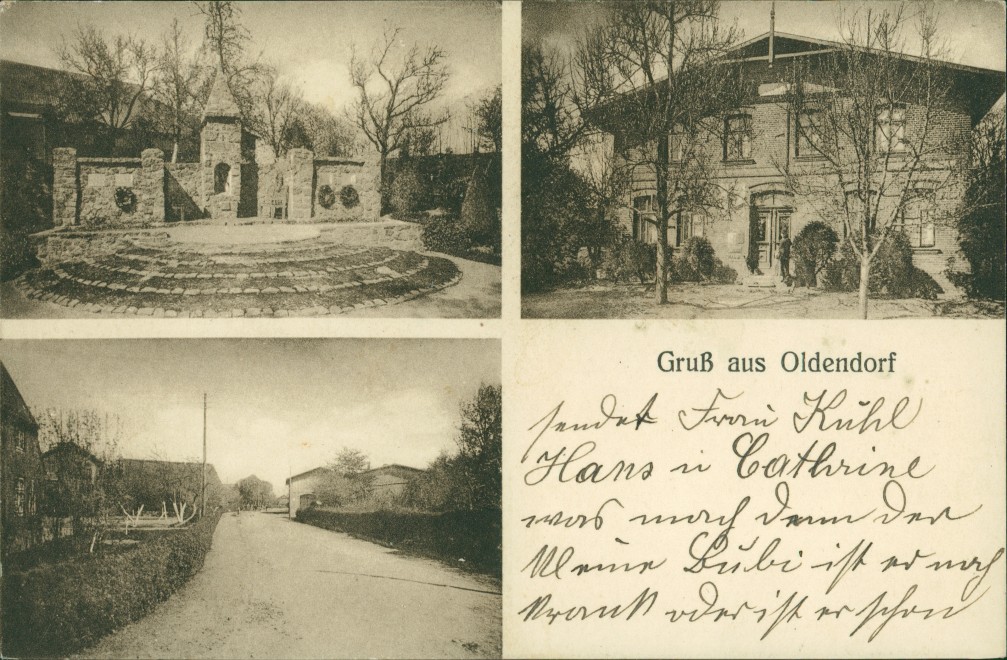 Gruß aus Oldendorf
sendet Frau Kühl
Hans u Cathrine
was mach denn der
kleine Bubi ist er noch
krank oder ist er schon